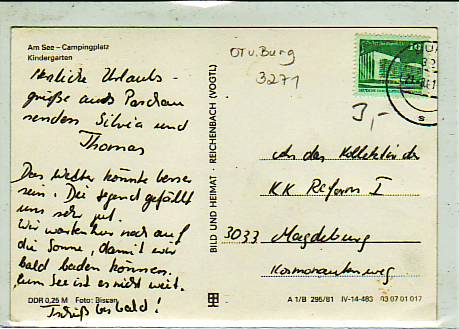 Am See – Campingplatz
Kindergarten
Herzliche Urlaubs-
grüße aus Parchau
senden Silvia und
Thomas
Das Wetter könnte besser
sein. Die Gegend gefällt
uns sehr gut.
Wir warten hier noch auf
die Sonne, damit wir
bald baden können.
Zum See ist es nicht weit.
Tschüß bis bald!
DDR 0,25 M Foto: Biscan
BILD UND HEIMAT · REICHENBACH (VOGTL)
OT v. Burg
3271
10
3,-
An das Kollektiv der
KK Reform I
3033 Magdeburg
Kormoranenweg
A 1/B 295/81 IV-14-483 03 07 01 017